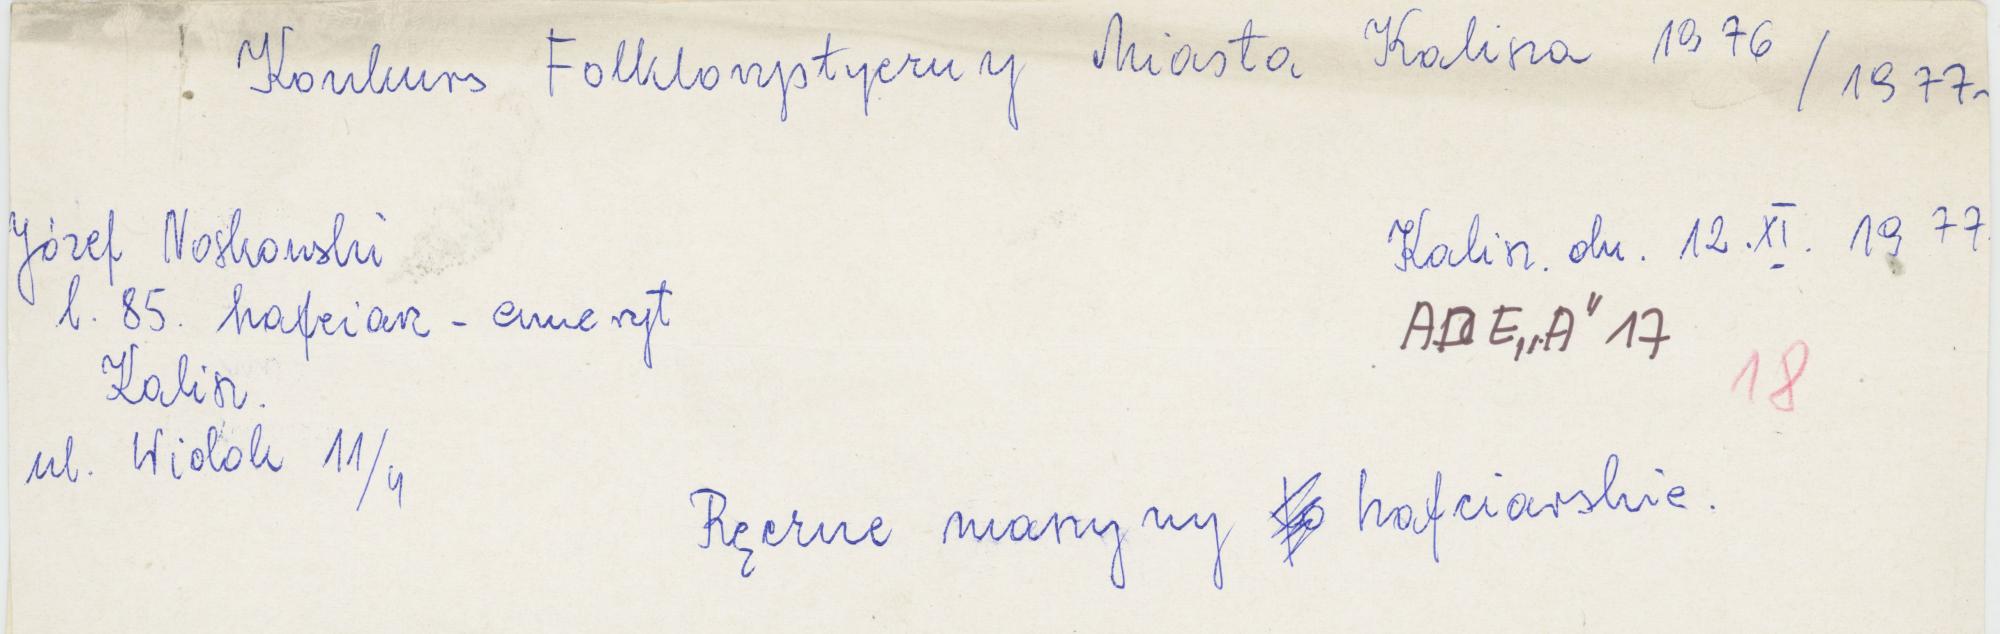 Konkurs Folklorystyczny Miasta Kalisza 1976/1977r.
Józef Noskowski
l. 85. hafciarz - emeryt
Kalisz.
ul. Widok 11/4
Kalisz. dn. 12.XI. 1977.
ADE „A" 17
18
Ręczne maszyny hafciarskie.